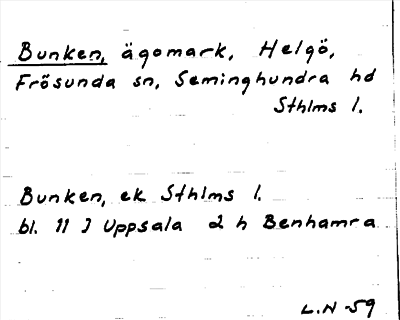 Bunken, ägomark, Helgö,
Frösunda sn, Seminghundra hd
Sthlms l.
Bunken, ek Sthlms l.
bl. 11 J Uppsala 2 h Benhamra
L.N -59